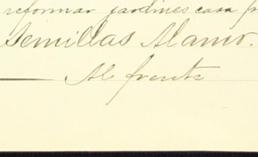 reformar jardines casa
Semillas Alamo.
Al frente